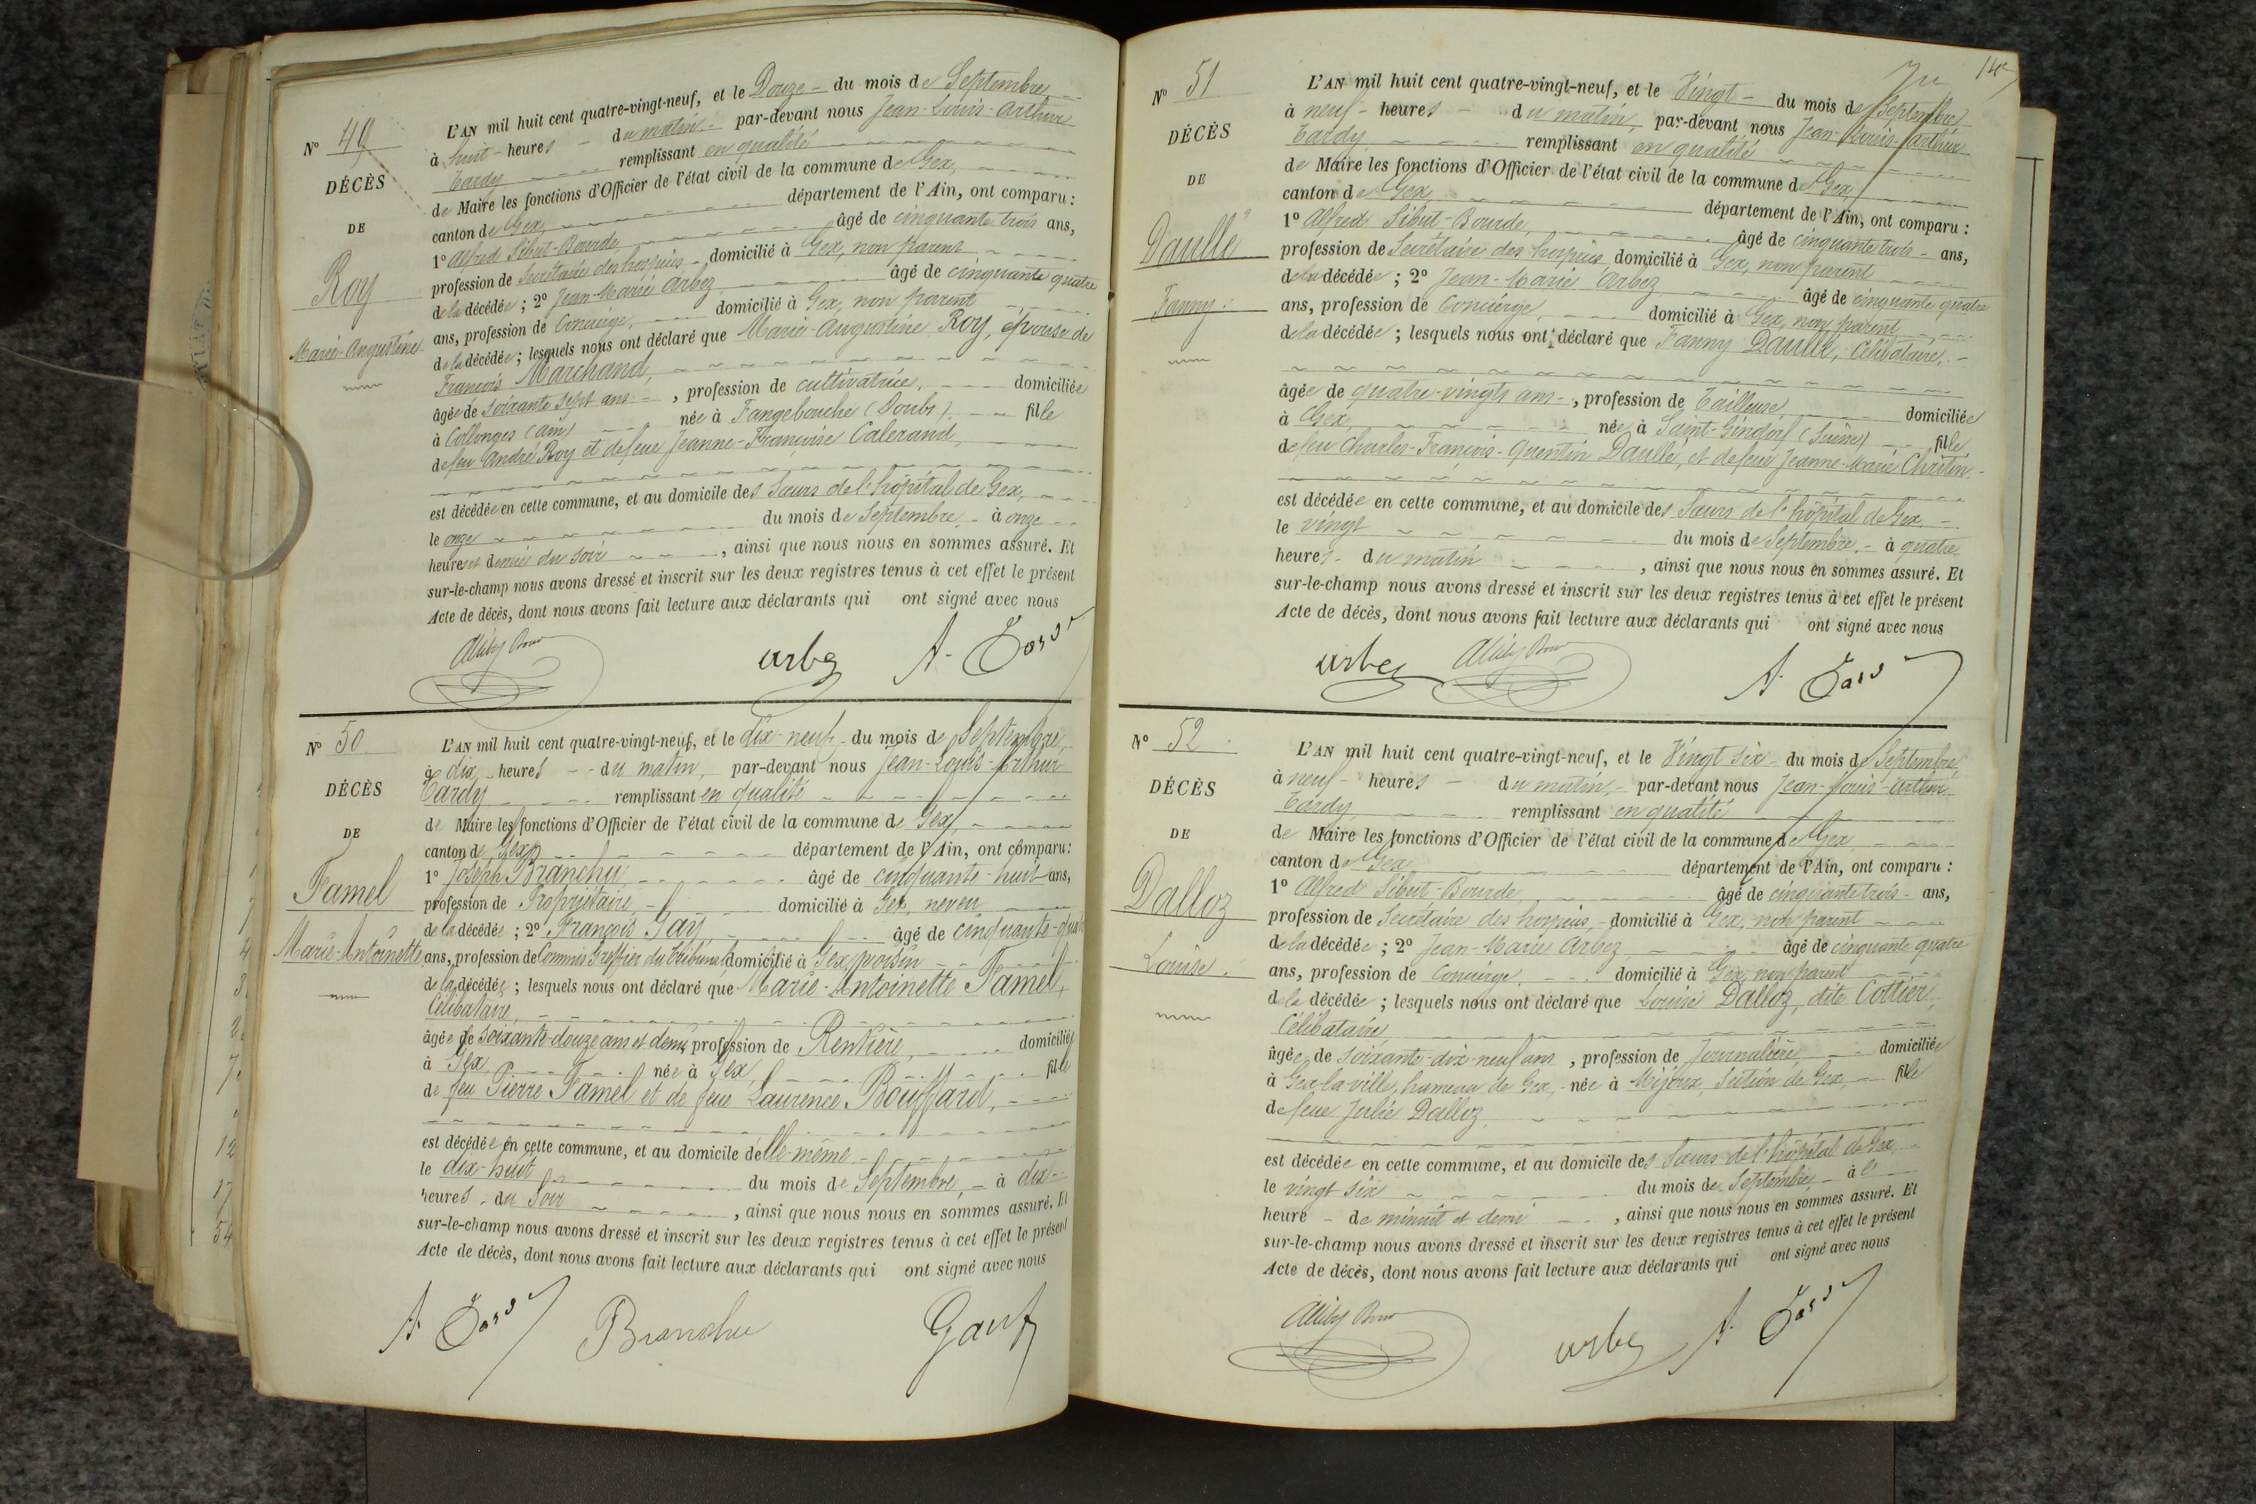 N° 49
DÉCÈS
DE
Roy
Marie-Augustine
L'AN mil huit cent quatre-vingt-neuf, et le Douze du mois de Septembre
à huit heures du matin par-devant nous Jean-Louis-Arthur
Tardy remplissant en qualité
de Maire les fonctions d'Officier de l'état civil de la commune de Gex,
canton de Gex, département de l'Ain, ont comparu :
1° Alfred Sibut-Bourde, âgé de cinquante trois ans,
profession de Secrétaire des hospices domicilié à Gex, non parent
de la décédée ; 2° Jean-Marie Arbez âgé de cinquante quatre
ans, profession de Concierge, domicilié à Gex, non parent
de la décédée ; lesquels nous ont déclaré que Marie-Augustine Roy, épouse de
François Marchand,
âgée de soixante sept ans, profession de cultivatrice, domiciliée
à Collonges (Ain) née à Fangebouche (Doubs), fille
de feu André Roy et de feue Jeanne-Françoise Calerand,
est décédée en cette commune, et au domicile des Sœurs de l'hôpital de Gex,
le onze du mois de Septembre, à onze
heures et demie du soir, ainsi que nous nous en sommes assuré. Et
sur-le-champ nous avons dressé et inscrit sur les deux registres tenus à cet effet le présent
Acte de décès, dont nous avons fait lecture aux déclarants qui ont signé avec nous
arbez A. Tardy
N° 50
DÉCÈS
DE
Famel
Marie-Antoinette
L'AN mil huit cent quatre-vingt-neuf, et le dix-neuf du mois de Septembre,
à dix heures du matin, par-devant nous Jean-Louis-Arthur
Tardy remplissant en qualité
de Maire les fonctions d'Officier de l'état civil de la commune de Gex,
canton de Gex, département de l'Ain, ont comparu:
1° Joseph Branchu âgé de cinquante-huit ans,
profession de Propriétaire domicilié à Gex, neveu
de la décédée ; 2° François Gay, âgé de cinquante-quatre
ans, profession de Commis Greffier du Tribunal domicilié à Gex, voisin
de la décédée ; lesquels nous ont déclaré que Marie-Antoinette Famel,
Célibataire,
âgée de soixante-douze ans et demi, profession de Rentière, domiciliée
à Gex, née à Gex, fille
de feu Pierre Famel et de feue Laurence Bouffard,
est décédée en cette commune, et au domicile d'elle-même
le dix-huit du mois de Septembre, à dix
heures du Soir, ainsi que nous nous en sommes assuré. Et
sur-le-champ nous avons dressé et inscrit sur les deux registres tenus à cet effet le présent
Acte de décès, dont nous avons fait lecture aux déclarants qui ont signé avec nous
A. Tardy Branchu Gay f
N° 51
DÉCÈS
DE
Daullé
Fanny.
L'AN mil huit cent quatre-vingt-neuf, et le Vingt du mois de Septembre
à neuf heures du matin, par-devant nous Jean-Louis-Arthur
Tardy remplissant en qualité
de Maire les fonctions d'Officier de l'état civil de la commune de Gex,
canton de Gex, département de l'Ain, ont comparu :
1° Alfred Sibut-Bourde, âgé de cinquante trois ans,
profession de Secrétaire des hospices domicilié à Gex, non parent
de la décédée ; 2° Jean-Marie Arbez âgé de cinquante quatre
ans, profession de Concierge, domicilié à Gex, non parent
de la décédée ; lesquels nous ont déclaré que Fanny Daullé, Célibataire,
âgée de quatre-vingts ans, profession de Tailleuse, domiciliée
à Gex, née à Saint-Gindorf (Suisse) fille
de feu Charles-François-Quentin Daullé, et de feue Jeanne-Marie Christin
est décédée en cette commune, et au domicile des Sœurs de l'hôpital de Gex
le vingt du mois de Septembre, à quatre
heures du matin, ainsi que nous nous en sommes assuré. Et
sur-le-champ nous avons dressé et inscrit sur les deux registres tenus à cet effet le présent
Acte de décès, dont nous avons fait lecture aux déclarants qui ont signé avec nous
arbez A. Tardy
N° 52
DÉCÈS
DE
Dalloz
Louise.
L'AN mil huit cent quatre-vingt-neuf, et le Vingt six du mois de Septembre
à neuf heures du matin, par-devant nous Jean-Louis-Arthur
Tardy remplissant en qualité
de Maire les fonctions d'Officier de l'état civil de la commune de Gex
canton de Gex département de l'Ain, ont comparu :
1° Alfred Sibut-Bourde, âgé de cinquante trois ans,
profession de Secrétaire des hospices, domicilié à Gex, non parent
de la décédée ; 2° Jean-Marie Arbez âgé de cinquante quatre
ans, profession de Concierge domicilié à Gex, non parent
de la décédée ; lesquels nous ont déclaré que Louise Dalloz, dite Cottier,
Célibataire,
âgée de soixante-dix-neuf ans, profession de Journalière domiciliée
à Gex-la-ville, hameau de Gex, née à Mijoux, Section de Gex, fille
de feue Julie Dalloz
est décédée en cette commune, et au domicile des Sœurs de l'hôpital de Gex,
le vingt six du mois de Septembre à l'
heure de minuit et demi, ainsi que nous nous en sommes assuré. Et
sur-le-champ nous avons dressé et inscrit sur les deux registres tenus à cet effet le présent
Acte de décès, dont nous avons fait lecture aux déclarants qui ont signé avec nous
arbez A. Tardy